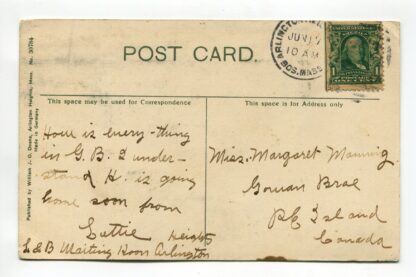 POST CARD.
ARLINGTON
JUN
10 AM
BOS. MASS.
1
This space may be used for Correspondence
This space is for Address only
How is every-thing
in G.B. I under-
stand H. is going
home soon from
Lettie
L&B Waiting Room Arlington
Heights
Miss. Margaret Manning
Gowan Brae
P.E Island
Canada
Published by William J. D. Arlington Heights, Mass. No.
Made in Germany